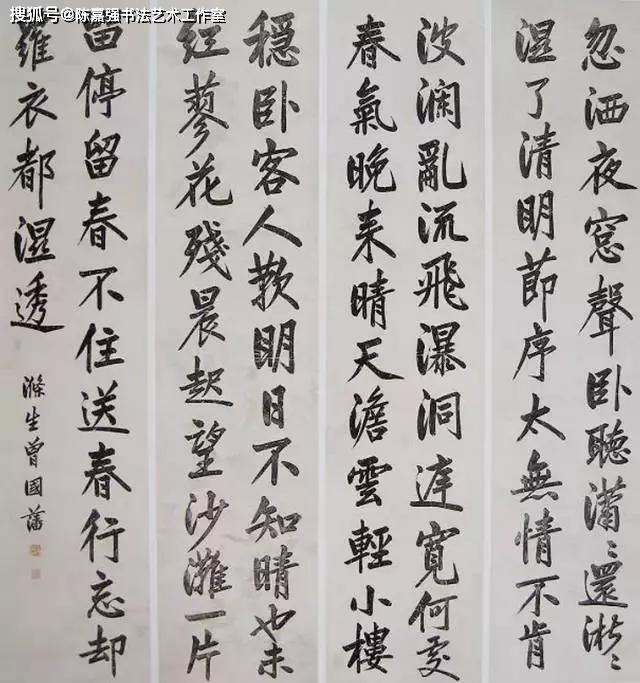 搜狐号@陈嘉强书法艺术工作室
忽洒夜窓聲卧聽瀟〻還淅〻
湿了清明節序太無情不肯
波澜亂流飛瀑洞達寬何處
春氣晚来晴天澹雲輕小樓
穩卧客人歎明日不知晴也未
红蓼花殘晨起望沙灘一片
留停留春不住送春行忘却
羅衣都湿透
滌生曾國藩